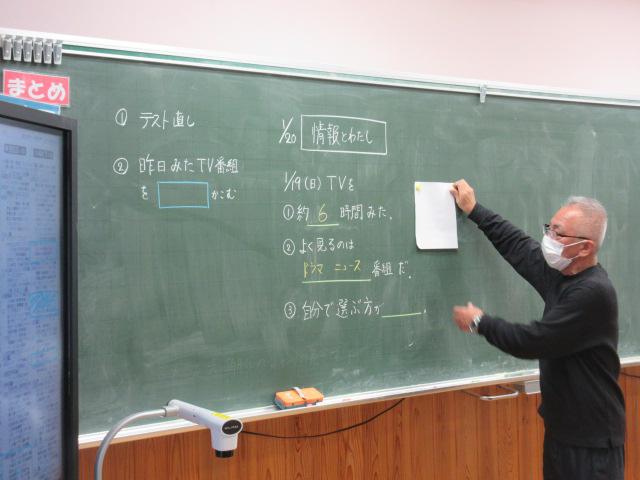 まとめ
① テスト直し
② 昨日みたTV番組
を かこむ
1/20 情報とわたし
1/19(日) TVを
① 約 6 時間みた。
② よく見るのは
ドラマ ニュース 番組だ。
③ 自分で選ぶ方が 。